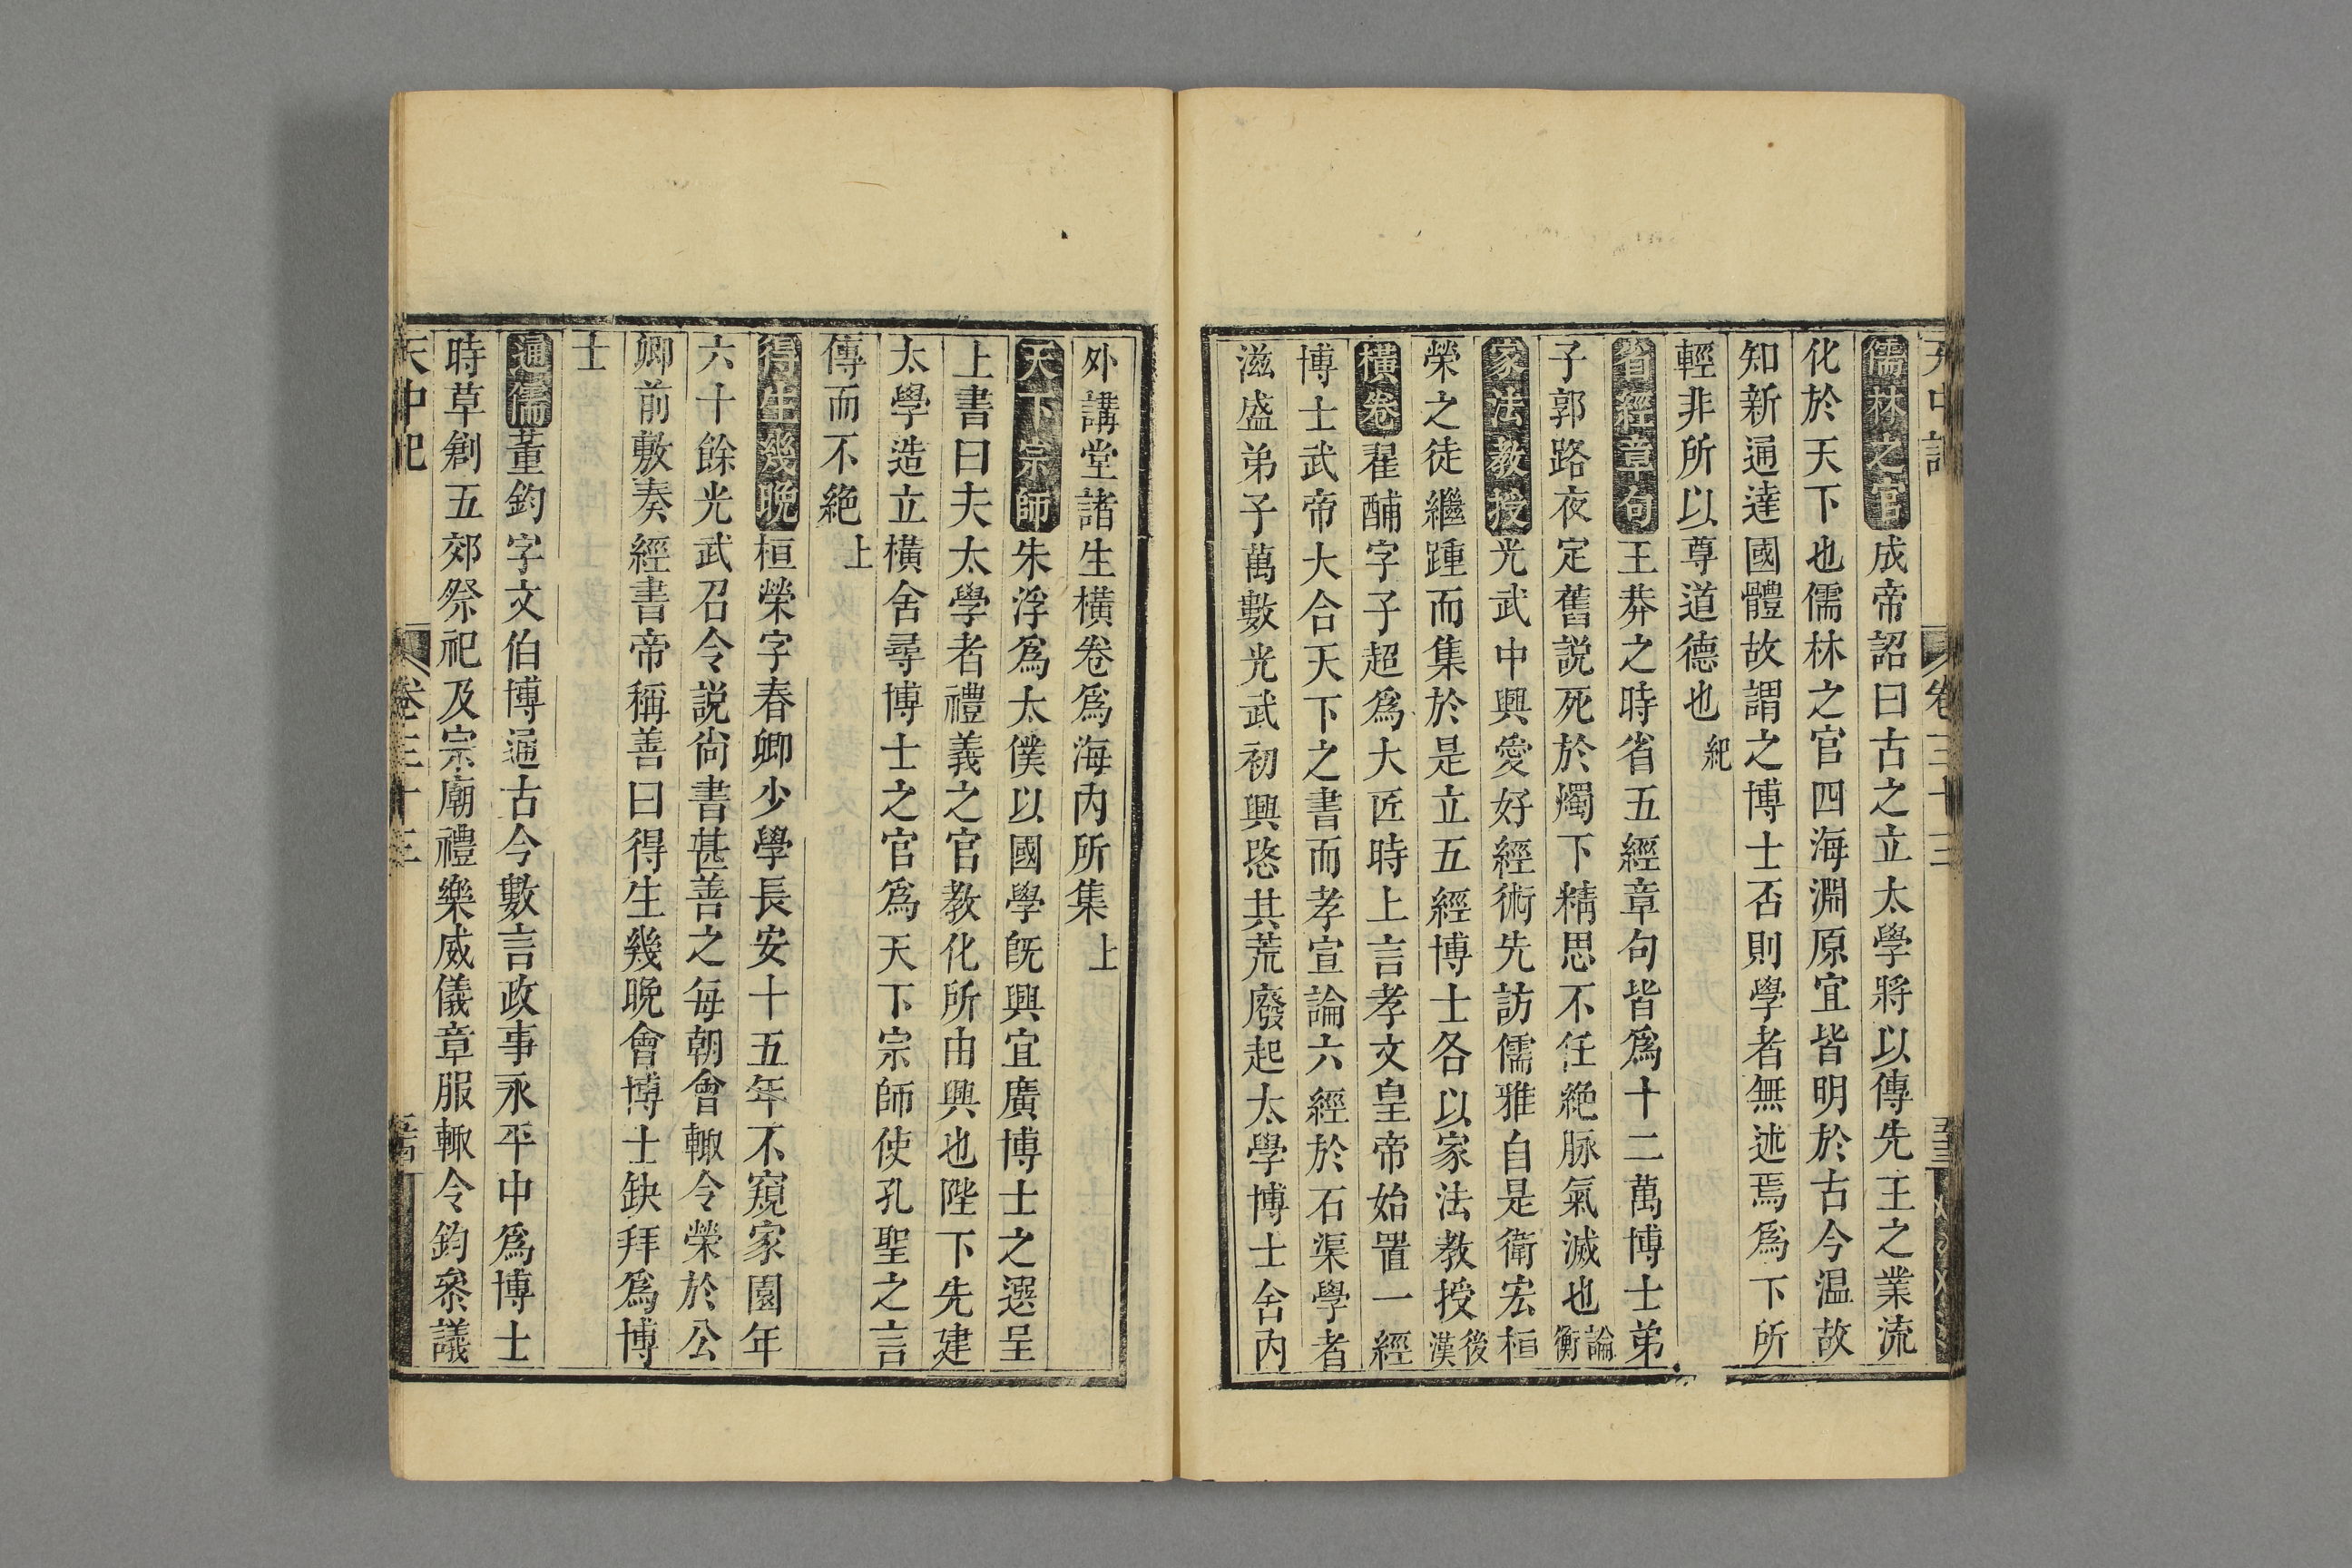 天中記
卷三十三
儒林之官成帝詔曰古之立太學將以傳先王之業流
化於天下也儒林之官四海淵原宜皆明於古今温故
知新通達國體故謂之博士否則學者無述焉爲下所
輕非所以尊道德也紀
省經章句王莽之時省五經章句皆爲十二萬博士弟
子郭路夜定舊説死於燭下精思不任絶脉氣滅也論衡
家法教授光武中興愛好經術先訪儒雅自是衛宏桓
榮之徒繼踵而集於是立五經博士各以家法教授後漢
橫卷翟酺字子超爲大匠時上言孝文皇帝始置一經
博士武帝大合天下之書而孝宣論六經於石渠學者
滋盛弟子萬數光武初興愍其荒廢起太學博士舍内
外講堂諸生橫卷爲海内所集上
天下宗師朱浮爲太僕以國學既興宜廣博士之選呈
上書曰夫太學者禮義之官教化所由興也陛下先建
太學造立橫舍尋博士之官爲天下宗師使孔聖之言
傳而不絶上
得生幾晚桓榮字春卿少學長安十五年不窺家園年
六十餘光武召令説尚書甚善之每朝會輙令榮於公
卿前敷奏經書帝稱善曰得生幾晚會博士缺拜爲博
士
通儒董鈞字文伯博通古今數言政事永平中爲博士
時草創五郊祭祀及宗廟禮樂威儀章服輙令鈞叅議
天中記
卷三十三